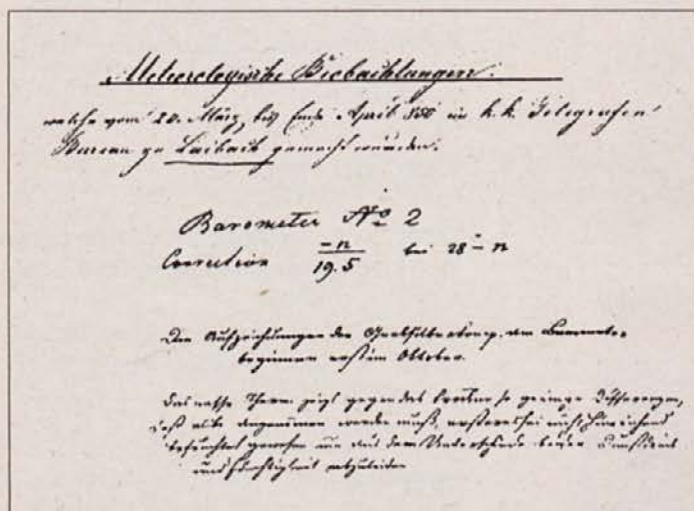 Meteorologische Beobachtungen.
welche vom 20. März bis Ende April 850 im k. k. Telegrafen
Bureau zu Laibach gemacht wurden.
Barometer No 2
Correction -n 19.5 bei 28 - n
Die Aufzeichnungen der am Barometer
beginnen erst im Oktober.
das nasse Therm. zeigt gegen das trockene so geringe Differenzen,
daß also angenommen werden muß, ersteres sei nicht hinreichend
befeuchtet gewesen um aus dem Unterschiede beider Dunstdruck
und Feuchtigkeit abzuleiten